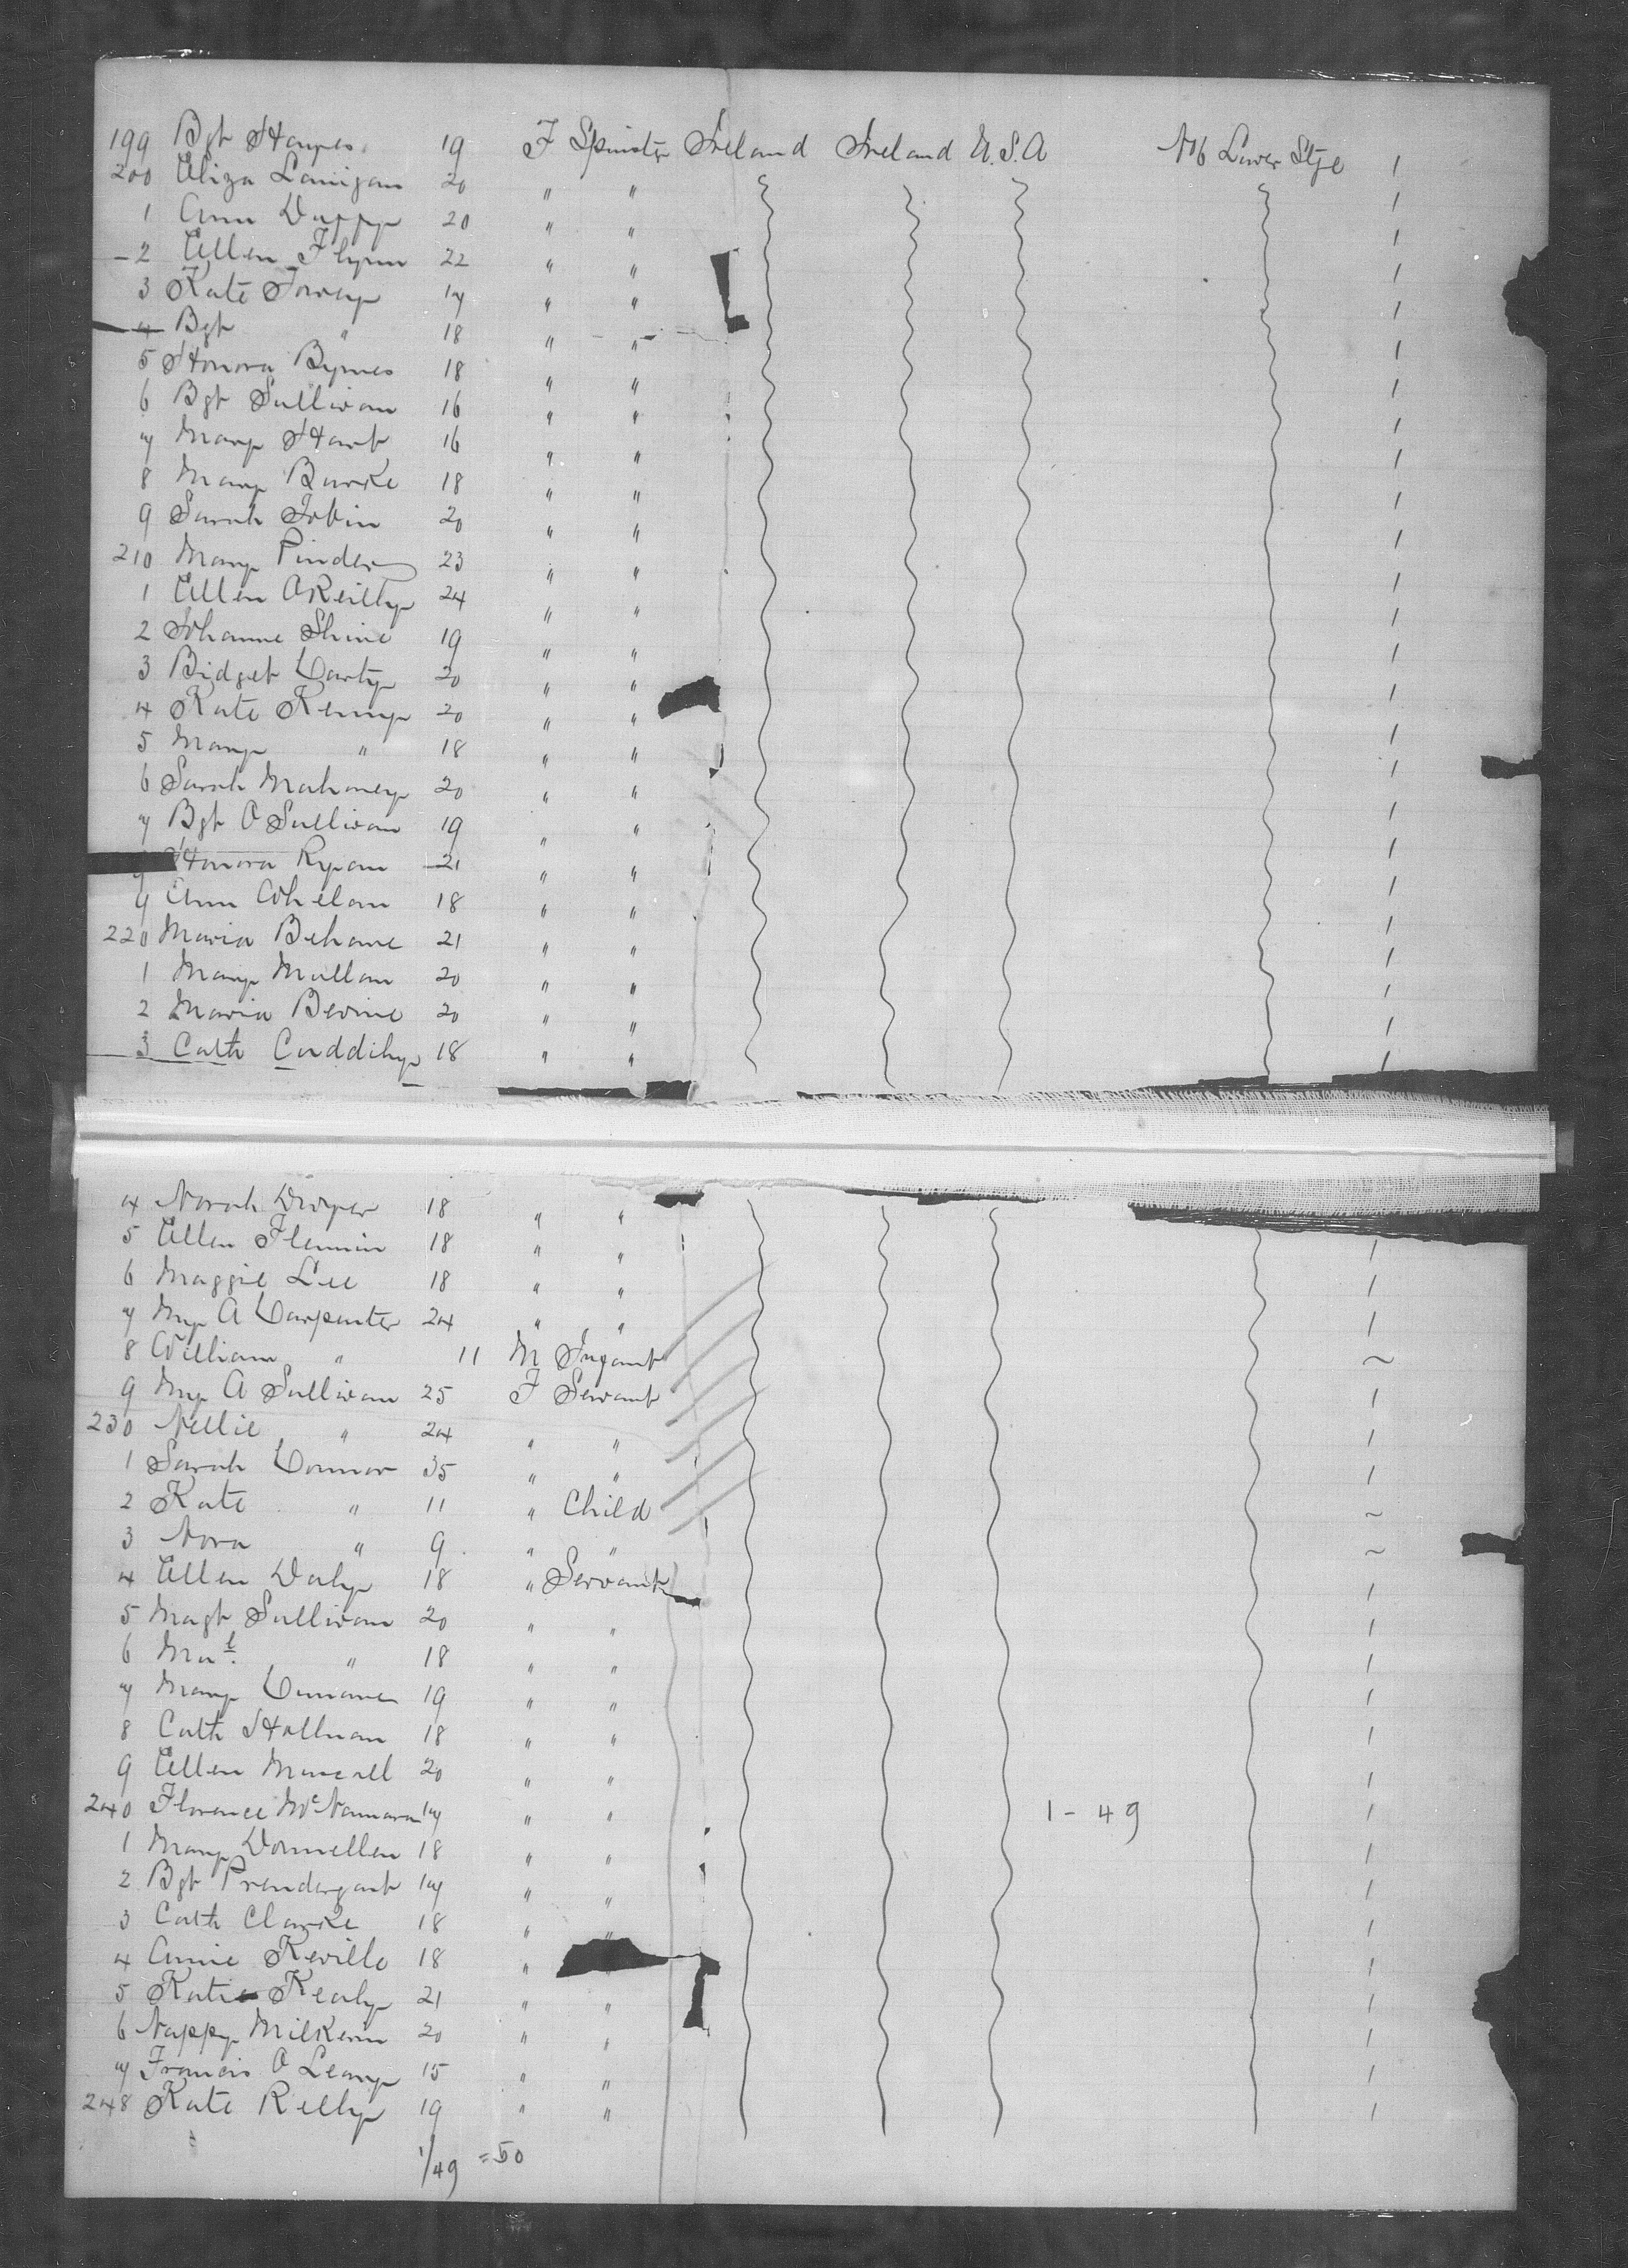 199 Bgt Hayes 19 F Spinster Ireland Ireland U.S.A No 6 Lower Stge 1
200 Eliza Lanigan 20 " " 1
1 Ann Duffy 20 " " 1
2 Ellen Flynn 22 " " 1
3 Kate Torvey 17 " " 1
4 Bgt " 18 " " 1
5 Honora Byrnes 18 " " 1
6 Bgt Sullivan 16 " " 1
7 Mary Hart 16 " " 1
8 Mary Burke 18 " " 1
9 Sarah Tobin 20 " " 1
210 Mary Pinder 23 " " 1
1 Ellen O Reilly 24 " " 1
2 Johanne Shine 19 " " 1
3 Bidget Carty 20 " " 1
4 Kate Kenny 20 " " 1
5 Mary " 18 " " 1
6 Sarah Mahoney 20 " " 1
7 Bgt O Sullivan 19 " " 1
Honora Ryan 21 " " 1
9 Ann Whelan 18 " " 1
220 Maria Behane 21 " " 1
1 Mary Mullan 20 " " 1
2 Maria Bevine 20 " " 1
3 Cath Cuddihy 18 " " 1
4 Norah Dwyer 18 " "
5 Ellen Flemin 18 " " 1
6 Maggie Lee 18 " " 1
7 My A Carpenter 24 " " 1
8 William " 11 M Infant ~
9 My A Sullivan 25 F Servant 1
230 Nellie " 24 " " 1
1 Sarah Connor 35 " " 1
2 Kate " 11 " Child ~
3 Nora " 9 " " ~
4 Ellen Daly 18 " Servant 1
5 Magt Sullivan 20 " " 1
6 " 18 " " 1
7 Mary Cunane 19 " " 1
8 Cath Hallnan 18 " " 1
9 Ellen 20 " " 1
240 Florence McNamara 17 " " 1-49 1
1 Mary Donnellan 18 " " 1
2 Bgt Prendergast 17 " " 1
3 Cath Clarke 18 " " 1
4 Annie Keville 18 " 1
5 Katie Kealy 21 " " 1
6 Nappy Milkerin 20 " " 1
7 Francis O Leary 15 " " 1
248 Kate Reilly 19 " " 1
1/49 = 50